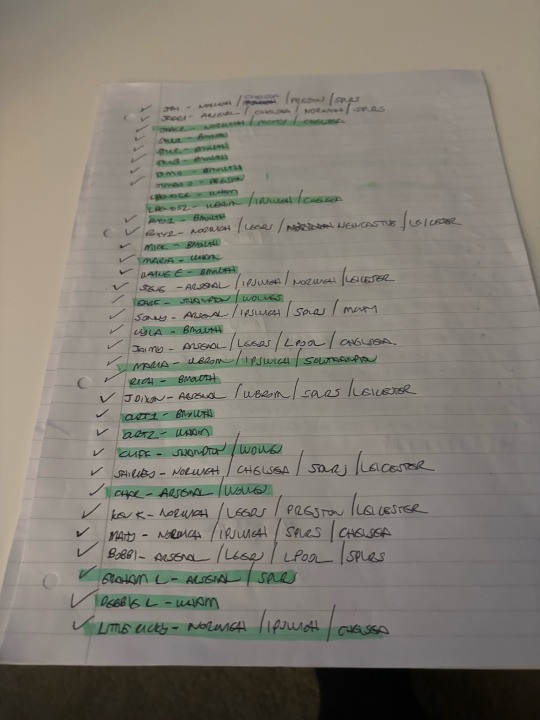 - NORWICH / CHELSEA / PRESTON / SPURS
- ARSENAL / CHELSEA / NORWICH / SPURS
- NORWICH / / CHELSEA
- BMOUTH
- BMOUTH
- BMOUTH
- BMOUTH
- PRESTON
- WHAM
- WHAM / IPSWICH / CHELSEA
- BMOUTH
- NORWICH / LEEDS / NEWCASTLE / LEICESTER
MICK - BMOUTH
MARIA - WHAM
WAYNE E - BMOUTH
STEVE - ARSENAL / IPSWICH / NORWICH / LEICESTER
- SHAMPTON / WOLVES
SONNY - ARSENAL / IPSWICH / SPURS /
LYLA - BMOUTH
JAIME - ARSENAL / LEEDS / LPOOL / CHELSEA
MARIA - WBROM / IPSWICH / SOUTHAMPTON
RICH - BMOUTH
J DIXON - ARSENAL / WBROM / SPURS / LEICESTER
ART1 - BMOUTH
ART2 - WHAM
CLIFF - SHAMPTON / WOLVES
SHIRLEY - NORWICH / CHELSEA / SPURS / LEICESTER
CHAR - ARSENAL / WOLVES
KEV K - NORWICH / LEEDS / PRESTON / LEICESTER
MATT - NORWICH / IPSWICH / SPURS / CHELSEA
BOBBI - ARSENAL / LEEDS / LPOOL / SPURS
GRAHAM L - ARSENAL / SPURS
DEBBIE L - WHAM
LITTLE RICKY - NORWICH / IPSWICH / CHELSEA